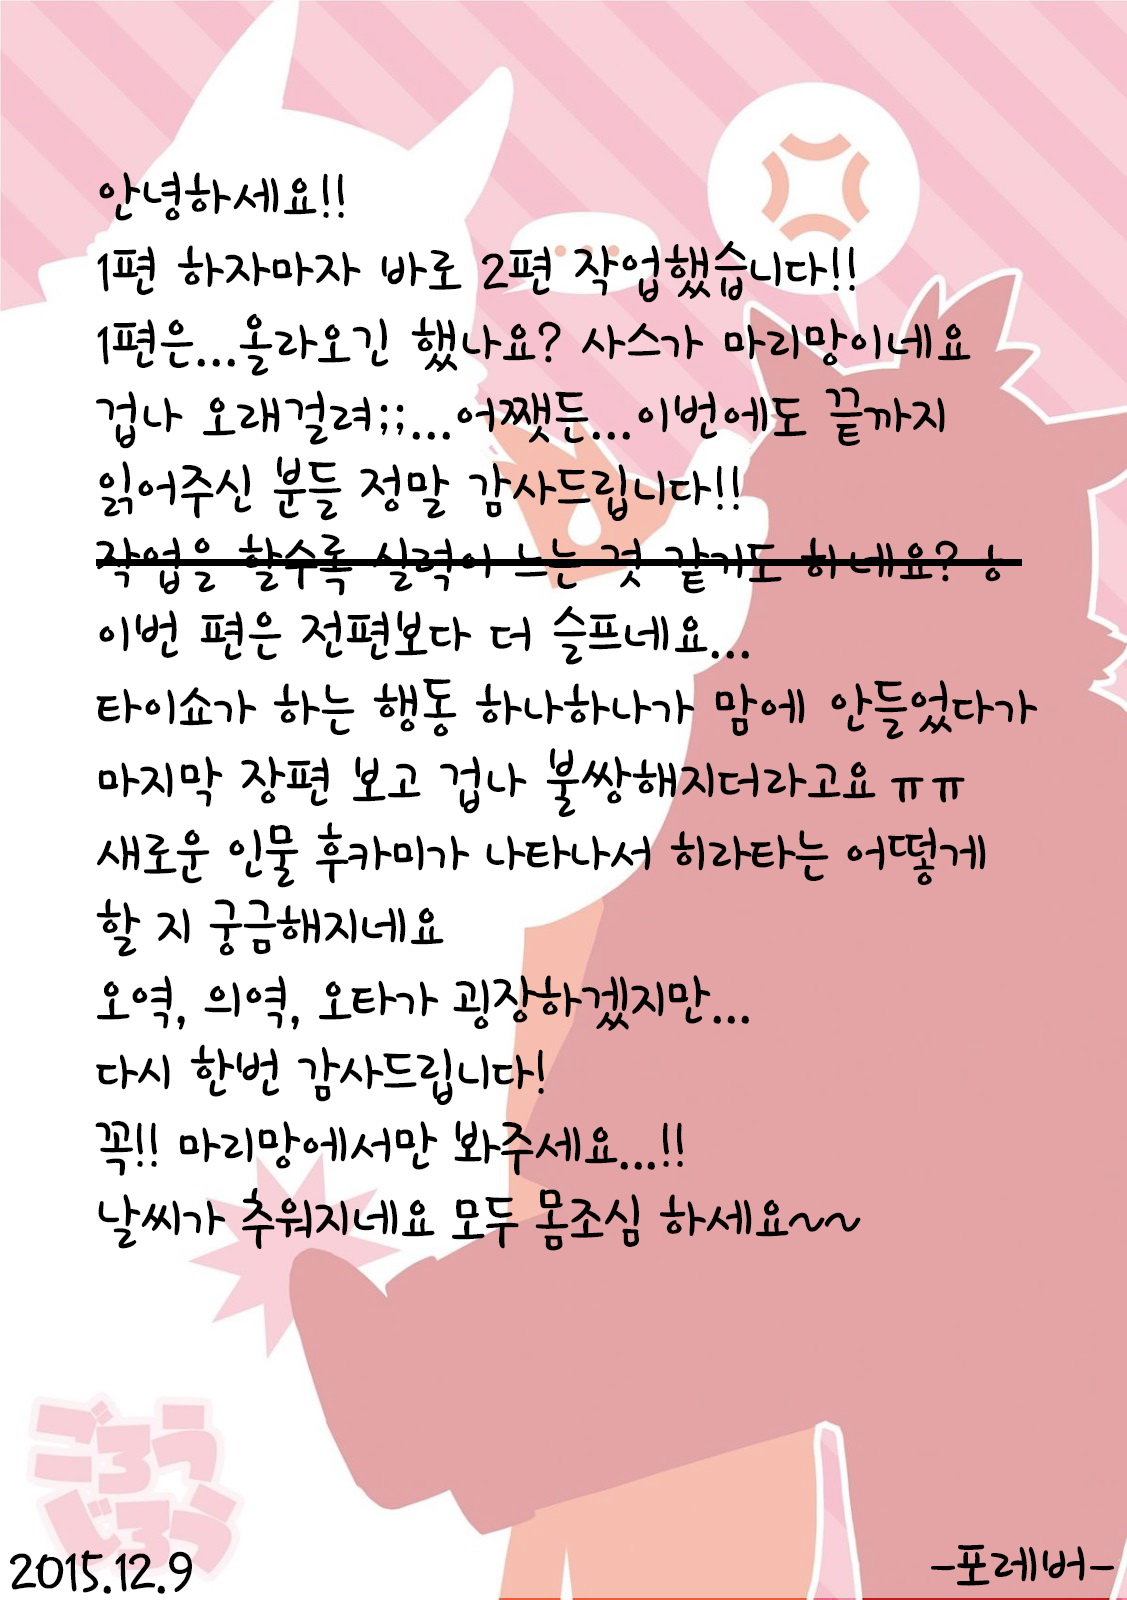 안녕하세요!!
1편 하자마자 바로 2편 작업했습니다!!
1편은...올라오긴 했나요? 사스가 마리망이네요
겁나 오래걸려;;...어쨋든...이번에도 끝까지
읽어주신 분들 정말 감사드립니다!!
작업을 할수록 실력이 느는 것 같기도 하네요? ㅎ
이번 편은 전편보다 더 슬프네요...
타이쇼가 하는 행동 하나하나가 맘에 안들었다가
마지막 장편 보고 겁나 불쌍해지더라고요 ㅠㅠ
새로운 인물 후카미가 나타나서 히라타는 어떻게
할 지 궁금해지네요
오역, 의역, 오타가 굉장하겠지만...
다시 한번 감사드립니다!
꼭!! 마리망에서만 봐주세요...!!
날씨가 추워지네요 모두 몸조심 하세요~~
ごろう
じろう
2015.12.9
-포레버-